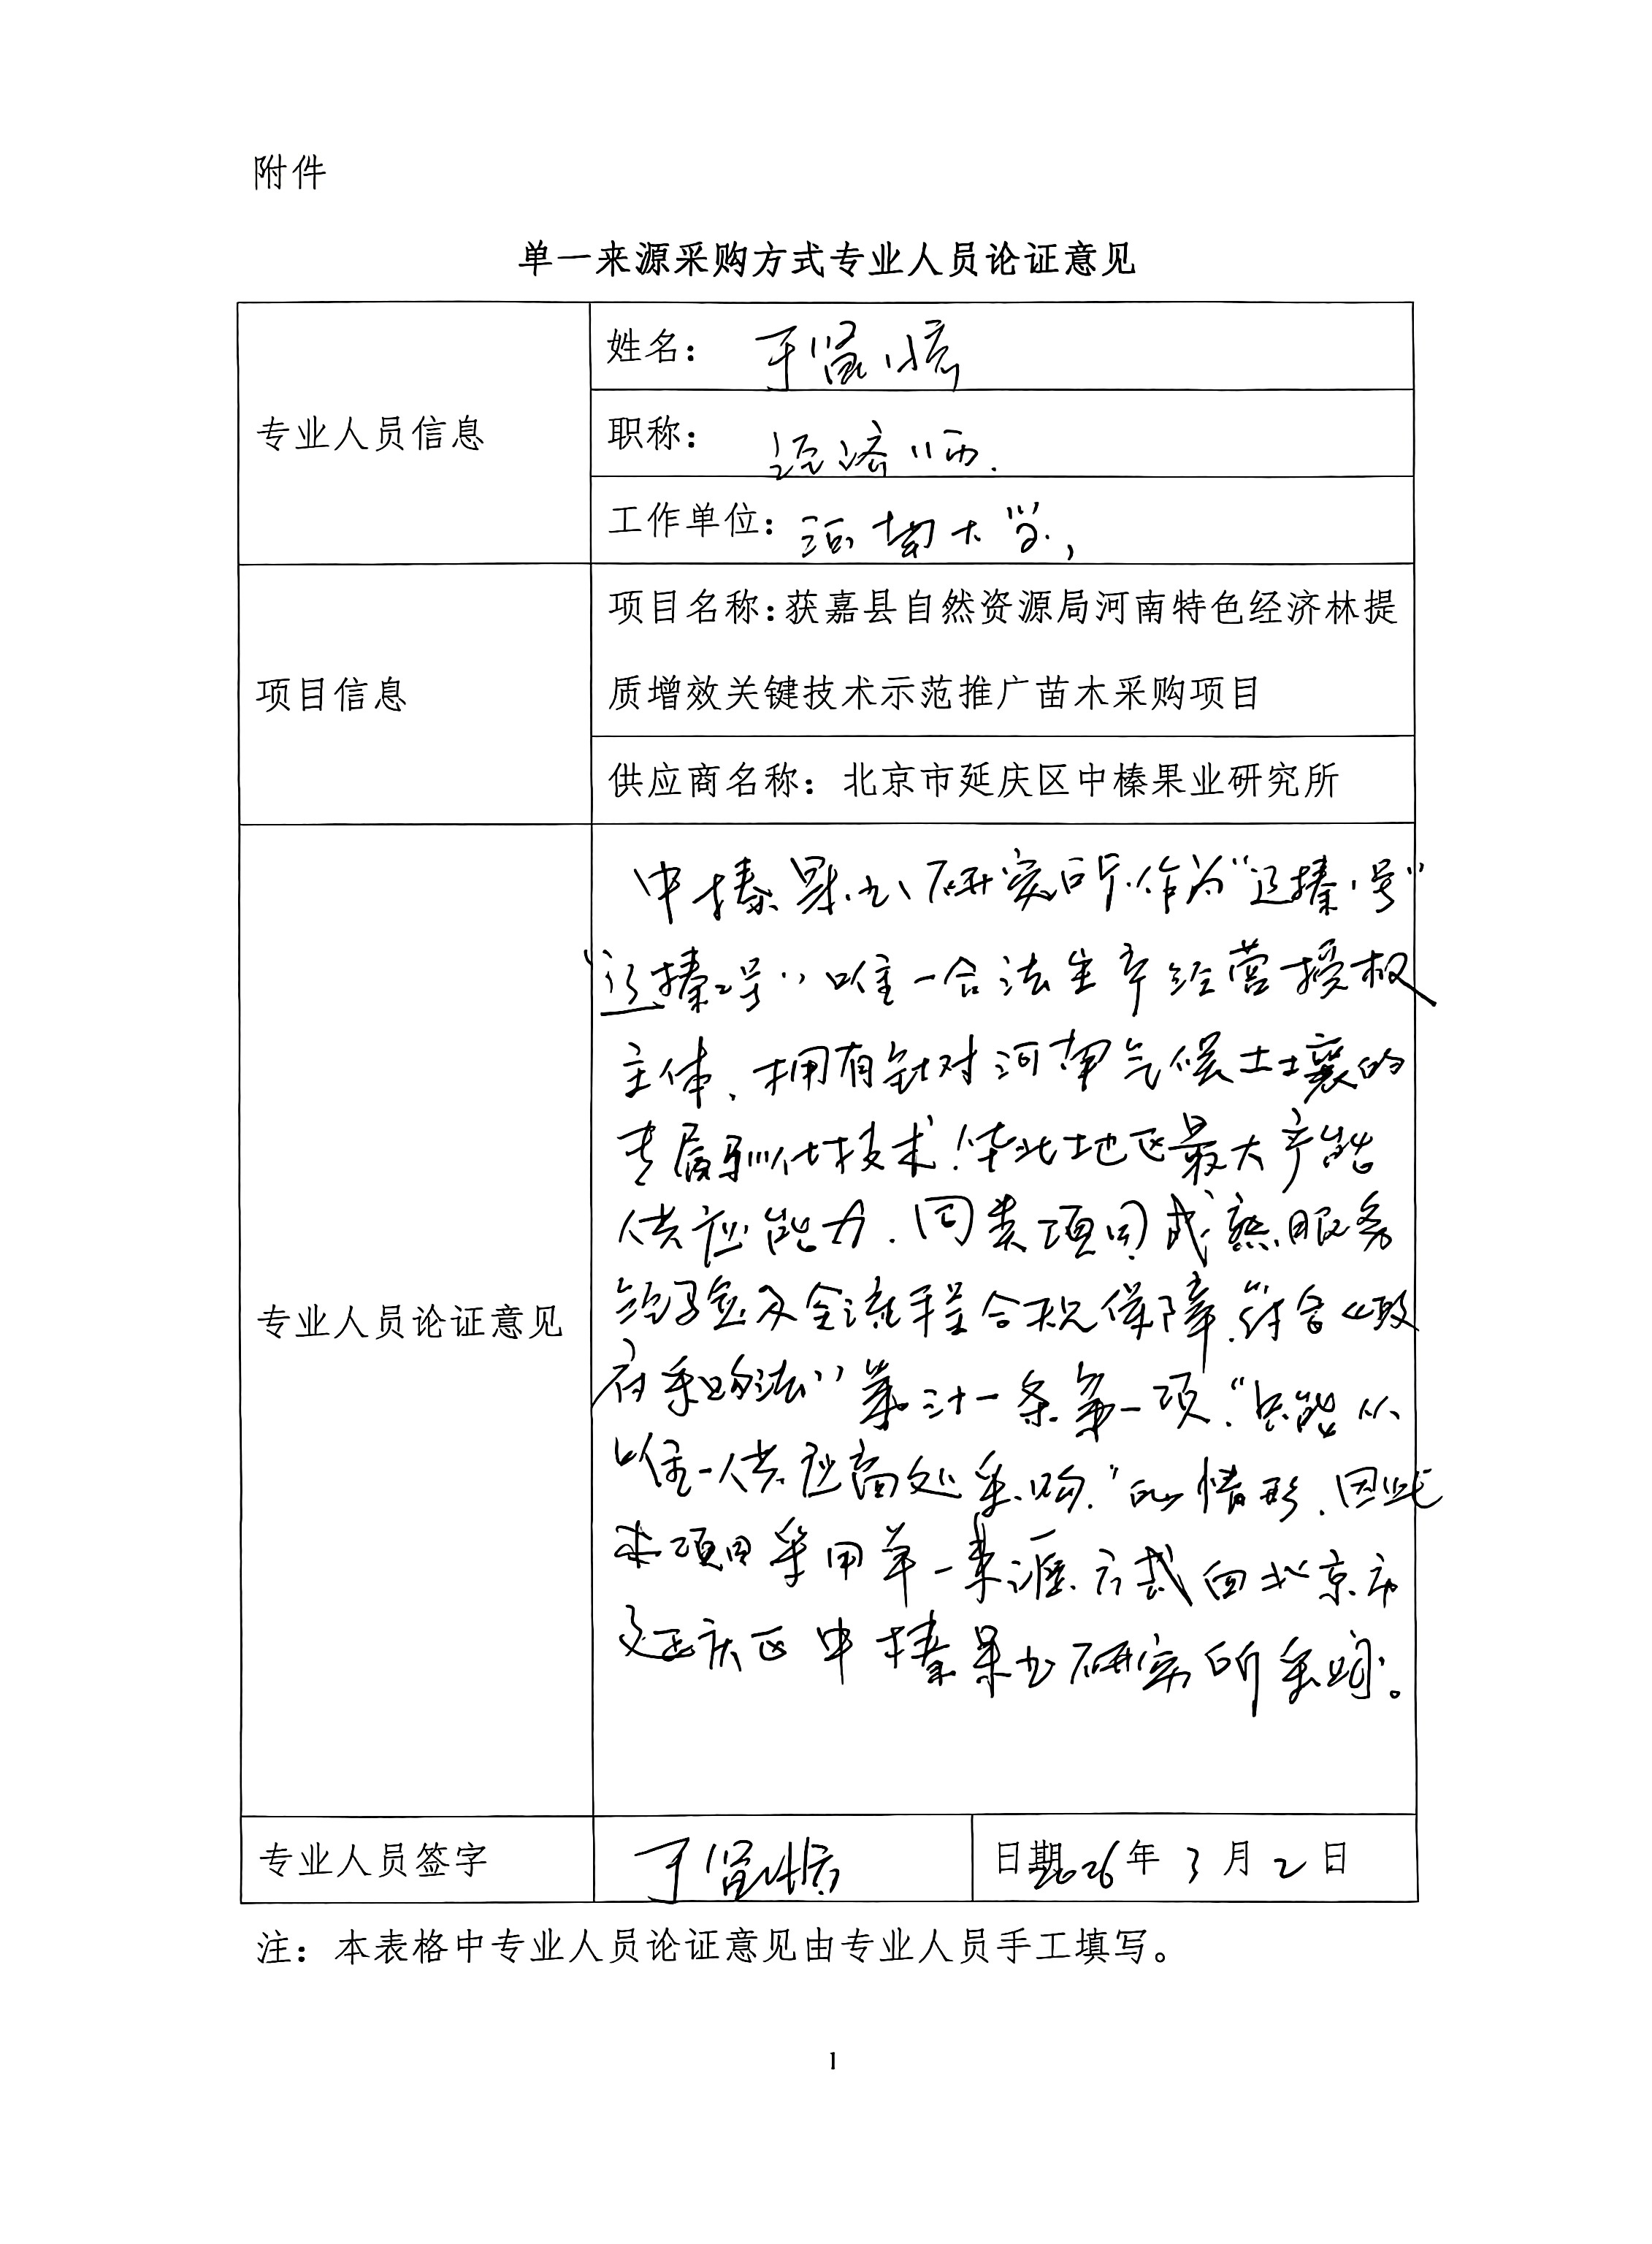 附件
单一来源采购方式专业人员论证意见
专业人员信息
姓名：于
职称：经济师.
工作单位：河南大学,
项目信息
项目名称：获嘉县自然资源局河南特色经济林提
质增效关键技术示范推广苗木采购项目
供应商名称：北京市延庆区中榛果业研究所
专业人员论证意见
中榛果业研究所作为“辽榛1号”
“辽榛2号”唯一合法生产经营授权
主体、拥有针对河南气候土壤的
专属驯化技术、华北地区最大产能
供应能力、同类项目成熟服务
经验及全流程合规保障、符合《政
府采购法》第三十一条第一项“只能从
唯一供应商处采购”的情形、因此
本项目采用单一来源方式向北京市
延庆区中榛果业研究所采购。
专业人员签字
于
日期2026年3月2日
注：本表格中专业人员论证意见由专业人员手工填写。
1